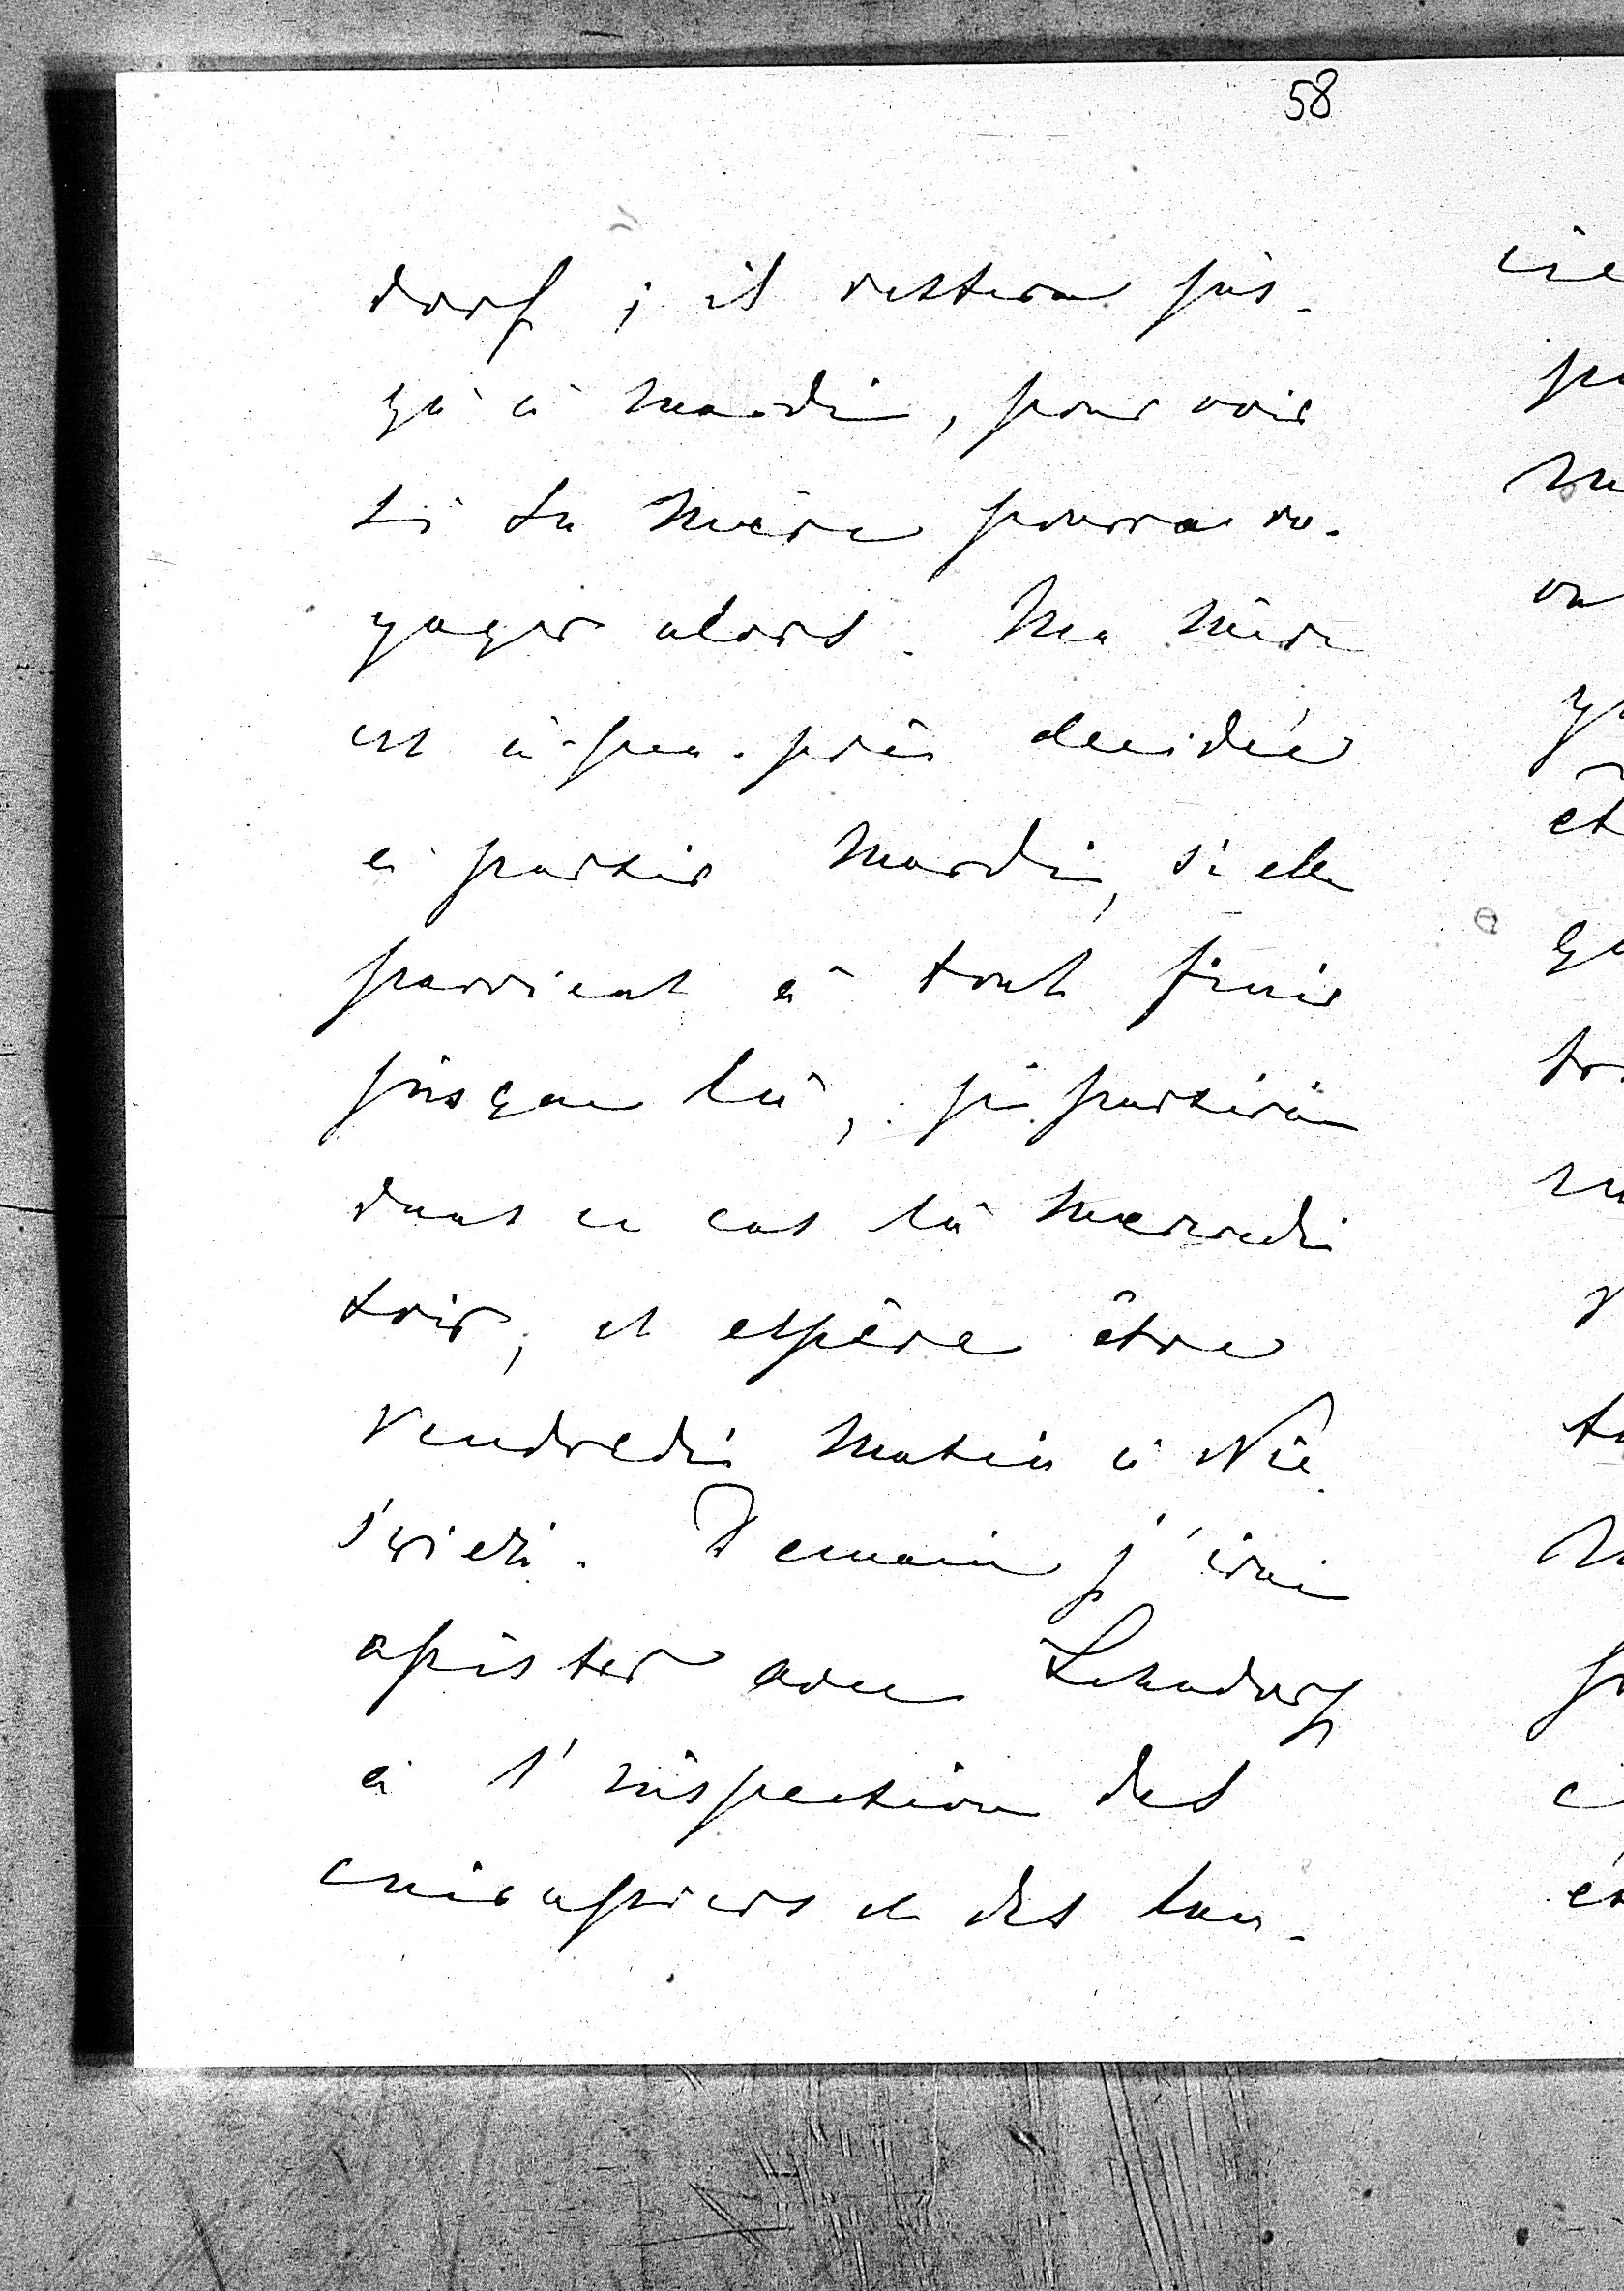 58
dorf ; il restera jus-
qu'à mardi, pour voir
si ta mère pourra vo-
yager alors. Ma mère
est à-peu-près decidée
à partir Mardi, si elle
parvient à tout finir
jusque là, je partirai
dans ce cas là mercredi
soir, et espère être
Vendredi matin à Nie-
świeź. Demain j'irai
assister avec Lehndorf
à l'inspection des
cuirassiers et des lan-